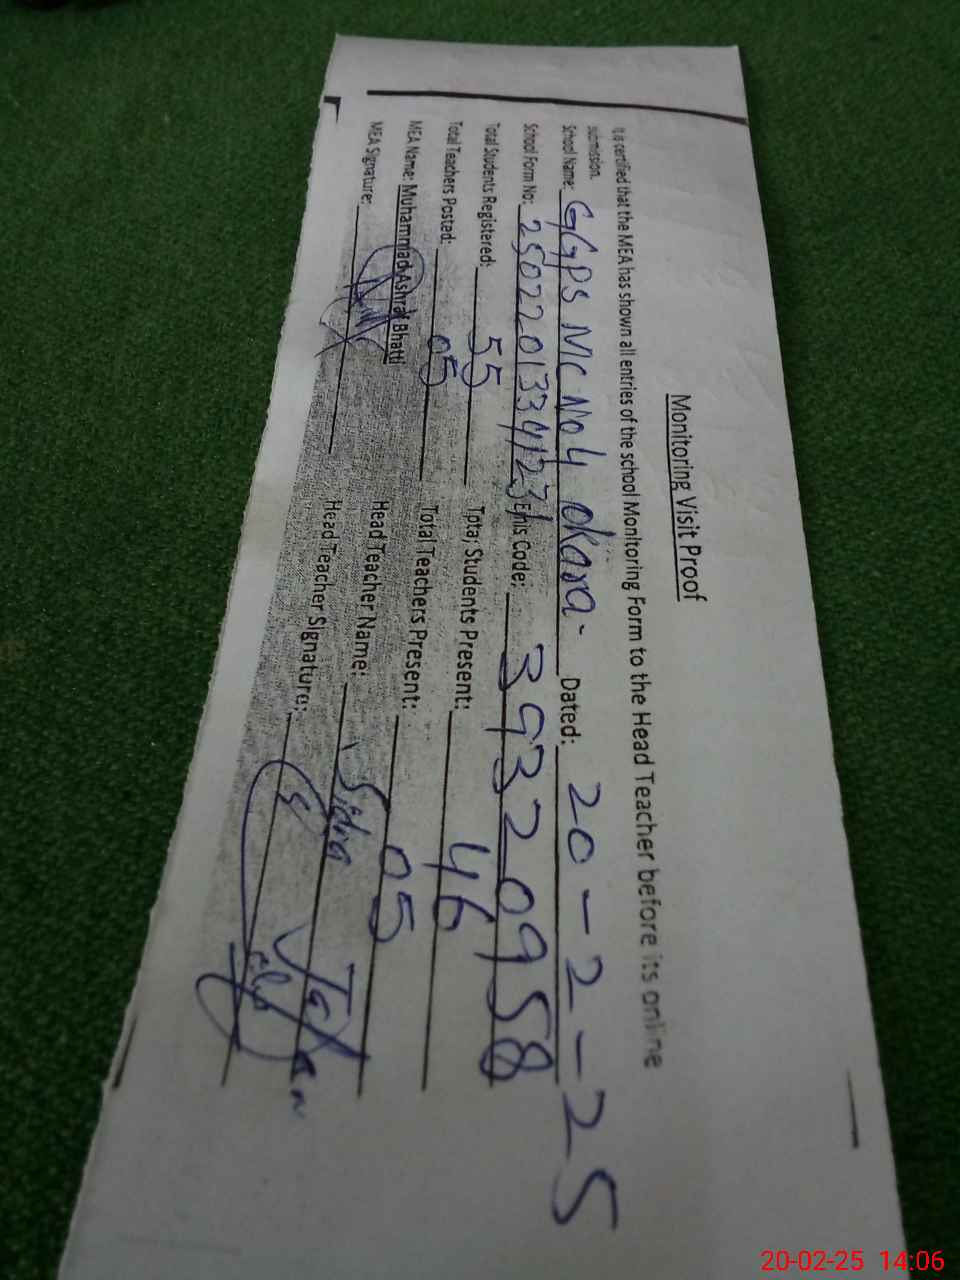 Monitoring Visit Proof
It is certified that the MEA has shown all entries of the school Monitoring Form to the Head Teacher before its online
submission.
School Name: GGPS MC No 4 Okara. Dated: 20-2-25
School Form No: 25022013341231 Emis Code: 39320958
Total Students Registered: 55 Tota; Students Present: 46
Total Teachers Posted: 05 Total Teachers Present: 05
MEA Name: Muhammad Ashraf Bhatti Head Teacher Name:
MEA Signature: Head Teacher Signature:
20-02-25 14:06